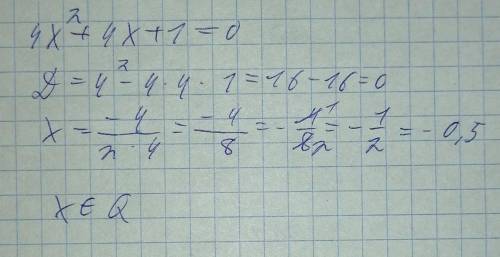 4x² + 4x + 1 = 0
D = 4² - 4 · 4 · 1 = 16 - 16 = 0
x = -4/(2 · 4) = -4/8 = -4̸¹/8̸₂ = -1/2 = -0,5
x ∈ Q